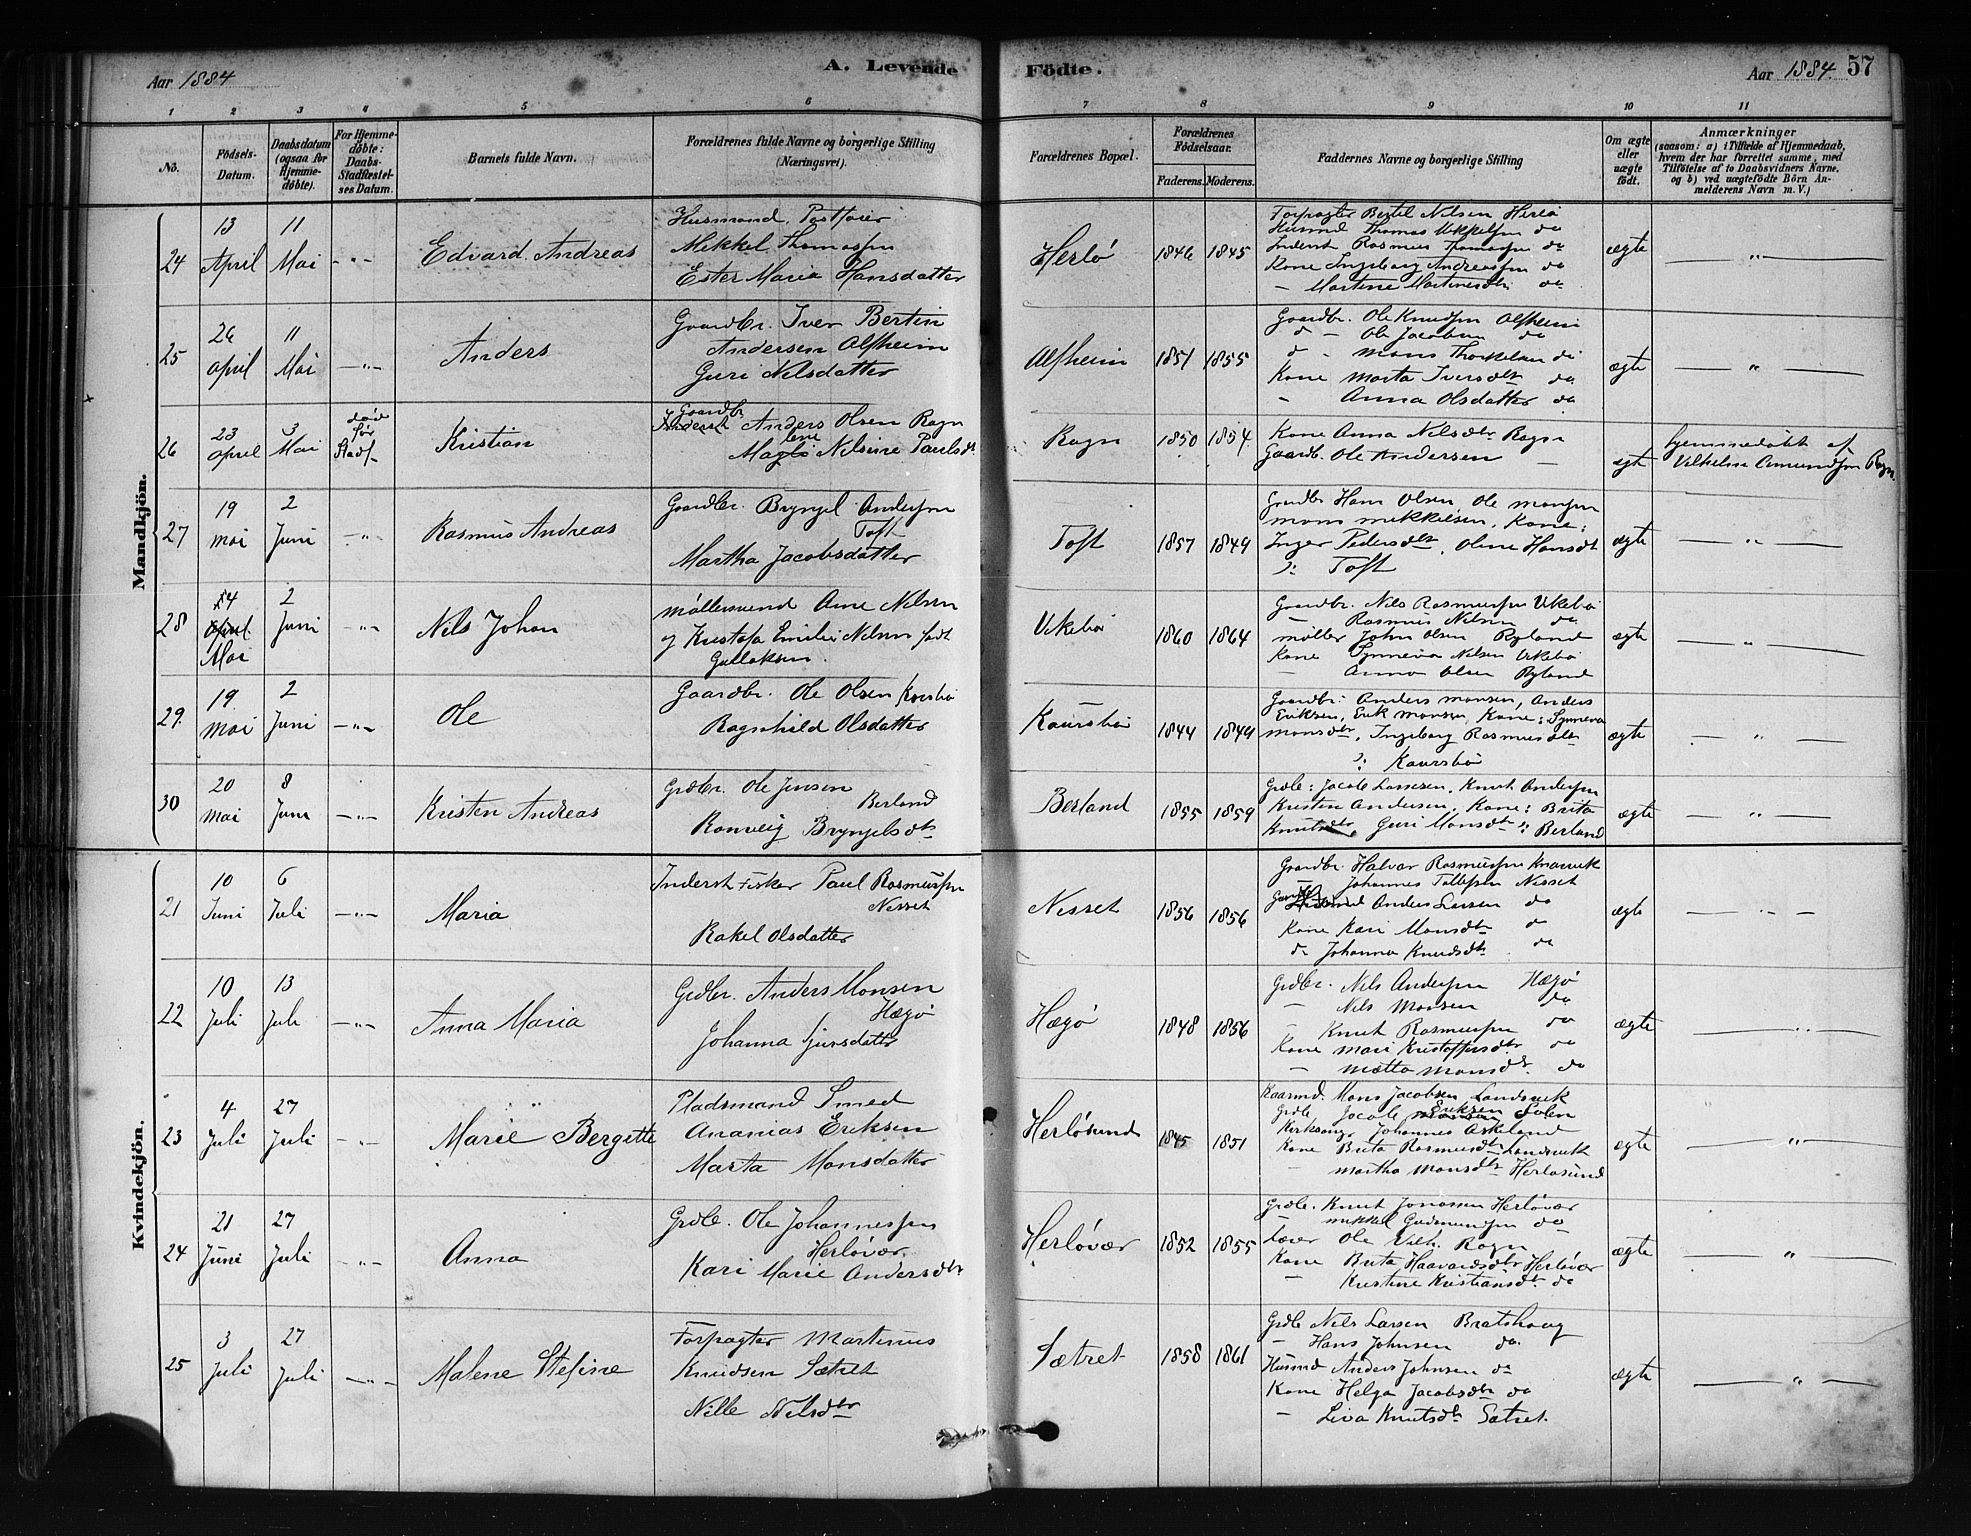 Aar 1884
A. Levende
Födte.
Aar 1884.
57
1 2 3 4 5 6 7 8 9 10 11
No.
Födsels-
Datum.
Daabsdatum
(ogsaa for
Hjemme-
döbte).
For Hjemme-
döbte:
Daabs-
Stadfæstel-
ses Datum.
Barnets fulde Navn.
Forældrenes fulde Navne og borgerlige Stilling
(Næringsvei).
Forældrenes Bopæl.
Forældrenes
Födselsaar.
Faderens. Moderens.
Faddernes Navne og borgerlige Stilling
Om ægte
eller
uægte
födt.
Anmærkninger
(saasom: a) i Tilfælde af Hjemmedaab,
hvem der har forrettet samme, med
Tilföielse af to Daabsvidners Navne,
og b) ved uægtefödte Börn An-
melderens Navn m. V.)
Mandkjön.
24
13
April
11
Mai
Edvard Andreas
Husmand,
Mikkel Thomassen
Ester Maria Hansdatter
Herlø
1846 1845
Forpagter Bertel Nilsen Herlø
Husmd Thomas Mikkelsen do
Inderst Rasmus Thomassen do
Kone Ingeborg Andreassen do
— Martine Martinusdtr do
ægte
25
26
April
11
Mai
Anders
Gaardbr. Iver Bertin
Andersen Alfheim
Guri Nilsdatter
Alfheim
1851 1855
Gaardbr. Ole Knudsen Alfheim
d — Ole Jacobsen do
d — Mons Thorkelsen do
Kone Marta Iversdtr do
— Anna Olsdatter do
ægte
26
23
April
3
Mai
død
før
Stadf.
Kristian
Gaardbr.
Inderst Anders Olsen Rogn
Nilsine Paulsdt
Rogn
1850 1854
Kone Anna Nilsdtr Rogn
Gaardb. Ole Andersen —
egte
hjemmedøbt af
Vilhelm Amundsen Rogn
27
19
Mai
2
Juni
Rasmus Andreas
Gaardbr. Bryngel Andersen
Toft
Martha Jacobsdatter
Toft
1857 1849
Gaardbr Hans Olsen, Ole Monsen
Mons Mikkelsen, Kone:
Inger Pedersdtr, Oline Hansdt
Toft
ægte
28
April
Mai
2
Juni
Nils Johan
Møllersvend Arne Nilsen
og Kristofa Emilie Nilsen født
Gullaksen.
Vikebø
1860 1864
Gaardbr. Nils Rasmussen Vikebø
— Rasmus Nilsen do
Møller John Olsen Ryland
Kone Synneva Nilsen Vikebø
— Anna Olsen Ryland
ægte
29.
19
Mai
2
Juni
Ole
Gaardbr. Ole Olsen
Ragnhild Olsdatter
Kaursbø
1844 1849
Gaardbr: Anders Monsen, Anders
Eriksen, Erik Monsen, Kone: Synneva
Monsdtr, Ingeborg Rasmusdtr
Kaursbø
ægte
30
20
Mai
8
Juni
Kristen Andreas
Grdbr. Ole Jensen
Berland
Ronveig Bryngelsdtr
Berland
1855 1859
Grdb: Jacob Lassesen, Knut Andersen
Kristen Andersen, Kone: Brita
Knutsdtr, Guri Monsdtr: Berland
ægte
Kvindekjön.
21
10
Juni
6
Juli
Maria
Inderst Fisker Paul Rasmussen
Nesset
Rakel Olsdatter
Nesset
1856 1856
Gaardbr. Halvar Rasmussen Knarvik
— Johannes Tollefsen Nesset
Anders Larsen do
Kone Kari Monsdtr do
do Johanna Knudsdtr do
ægte
22
10
Juli
13
Juli
Anna Maria
Grdbr. Anders Monsen
Hægø
Johanna Sjursdatter
Hægø
1848 1856
Grdbr. Nils Andersen Hægø
— Nils Monsen do
— Knut Rasmussen do
Kone Mari Kristoffersdtr do
— Mætta Monsdtr. do
ægte
23
4
Juli
27
Juli
Marie Bergitte
Pladsmand Smed
Ananias Eriksen
Marta Monsdatter
Herløsund
1845 1851
Kaarmd. Mons Jacobsen Landsvik
Grdb Jacob Eriksen
Kirksanger Johannes Askeland
Kone Brita Rasmusdtr Landsvik
— Martha Monsdtr Herløsund
ægte
24
21
Juni
27
Juli
Anna
Grdb. Ole Johannessen
Herløvær
Kari Marie Andersdtr
Herløvær
1852 1855
Grdb. Knut Jonassen Herløvær
Mikkel Gudmundsen do
Lærer Ole Vilh. Rogn
Kone Brita Haavardsdtr Herløvær
— Kristine Kristiansdtr do
ægte
25
3
Juli
27
Juli
Malene Stefine
Forpagter Martinus
Knudsen Sætret
Nille Nilsdtr
Sætret
1858 1861
Grdb Nils Larsen Bratshaug
— Hans Johnsen do.
Husmd Anders Johnsen do
Kone Helga Jacobsdtr do
— Liva Knutsdtr Sætret.
ægte